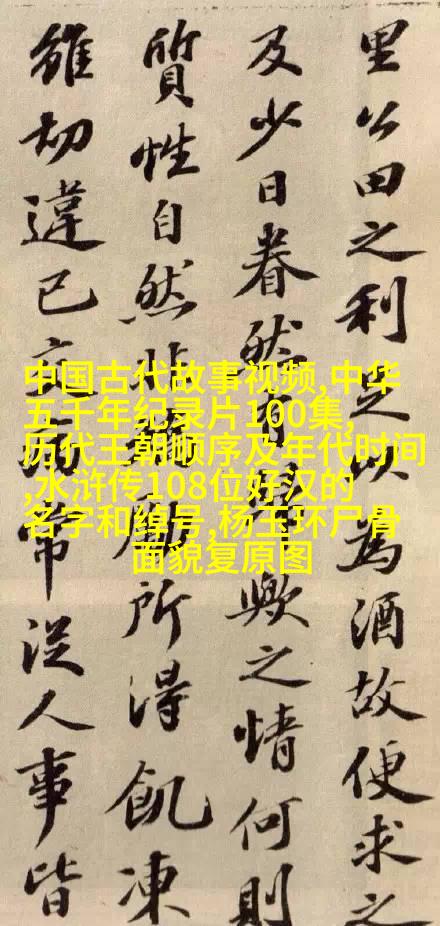 里公田之利足以為酒故便求之
及少日眷然有歟之情何則
質性自然非勵所得飢凍
雖切違已交常從人事皆
中国古代故事视频,中华
五千年纪录片100集,
历代王朝顺序及年代时间
,水浒传108位好汉的
名字和绰号,杨玉环尸骨
面貌复原图